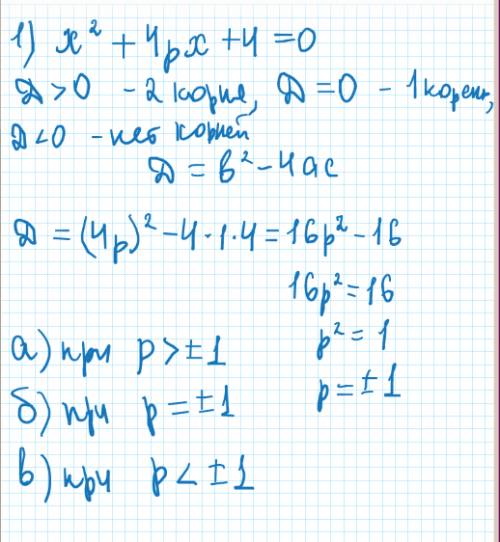 1) x² + 4px + 4 = 0
D > 0 - 2 корня, D = 0 - 1 корень,
D < 0 - нет корней
D = b² - 4ac
D = (4p)² - 4·1·4 = 16p² - 16
16p² = 16
p² = 1
p = ±1
а) при p > ±1
б) при p = ±1
в) при p < ±1